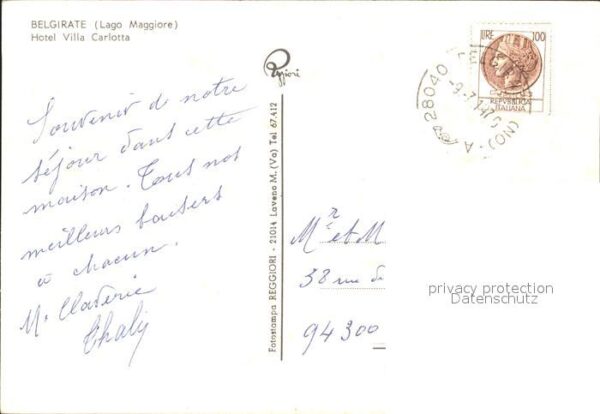 BELGIRATE (Lago Maggiore)
Hotel Villa Carlotta
Souvenir de notre
séjour dans cette
maison. Tous nos
meilleurs baisers
à chacun.
Reggiori
Fotostampa REGGIORI - 21014 Laveno M. (Va) Tel 67.412
LIRE 100
REPVBBLICA
ITALIANA
28040
(NO)
Mr et M
38 rue d
94300
privacy protection
Datenschutz